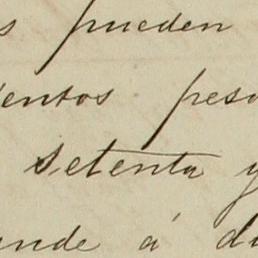 s pueden
entos peso
setenta y
ende á di